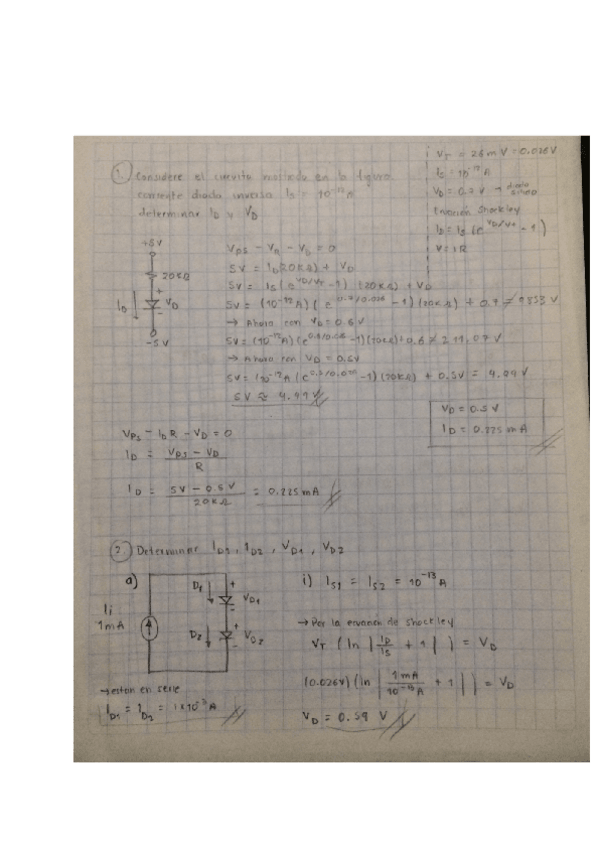 1. Considere el circuito mostrado en la figura.
corriente diodo inverso Is = 10^-12 A
determinar ID y VD
VT = 26 mV = 0.026V
Is = 10^-12 A
VD = 0.7 V → diodo
Ecuación Shockley
ID = Is (e^VD/VT - 1)
V = IR
+5V
20KΩ
ID
+
VD
-
-5V
VPS - VR - VD = 0
5V = ID(20KΩ) + VD
5V = Is (e^VD/VT - 1) (20KΩ) + VD
5V = (10^-12 A) (e^0.7/0.026 - 1) (20KΩ) + 0.7 ≠ 9853 V
→ Ahora con VD = 0.6V
→ Ahora con VD = 0.5V
+ 0.5V = 4.99V
5V ≈ 4.99 V
VD = 0.5V
ID = 0.225 mA
VPS - IDR - VD = 0
ID = VPS - VD / R
ID = 5V - 0.5V / 20KΩ = 0.225 mA
2. Determinar ID1, ID2, VD1, VD2
a)
Ii
1mA
D1
+
VD1
-
D2
+
VD2
-
i) IS1 = IS2 = 10^-13 A
→ Por la ecuación de shockley
VT (ln | ID/Is + 1 | ) = VD
(0.026V) (ln | 1mA/10^-13 A + 1 | ) = VD
VD = 0.59 V
→ estan en serie
ID1 = ID2 = 1x10^-3 A